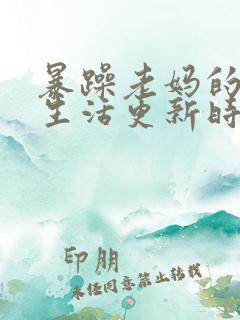 暴躁老妈的
生活更新时
印朋
未经同意禁止转载